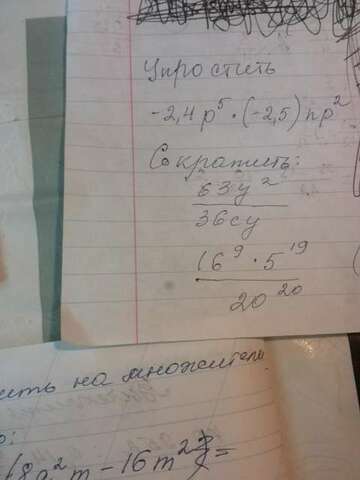 Упростить
-2,4p⁵·(-2,5)np²
Сократить:
63y²
36cy
16⁹·5¹⁹
20²⁰
ить на множители
о:
(8a²m-16m²
=